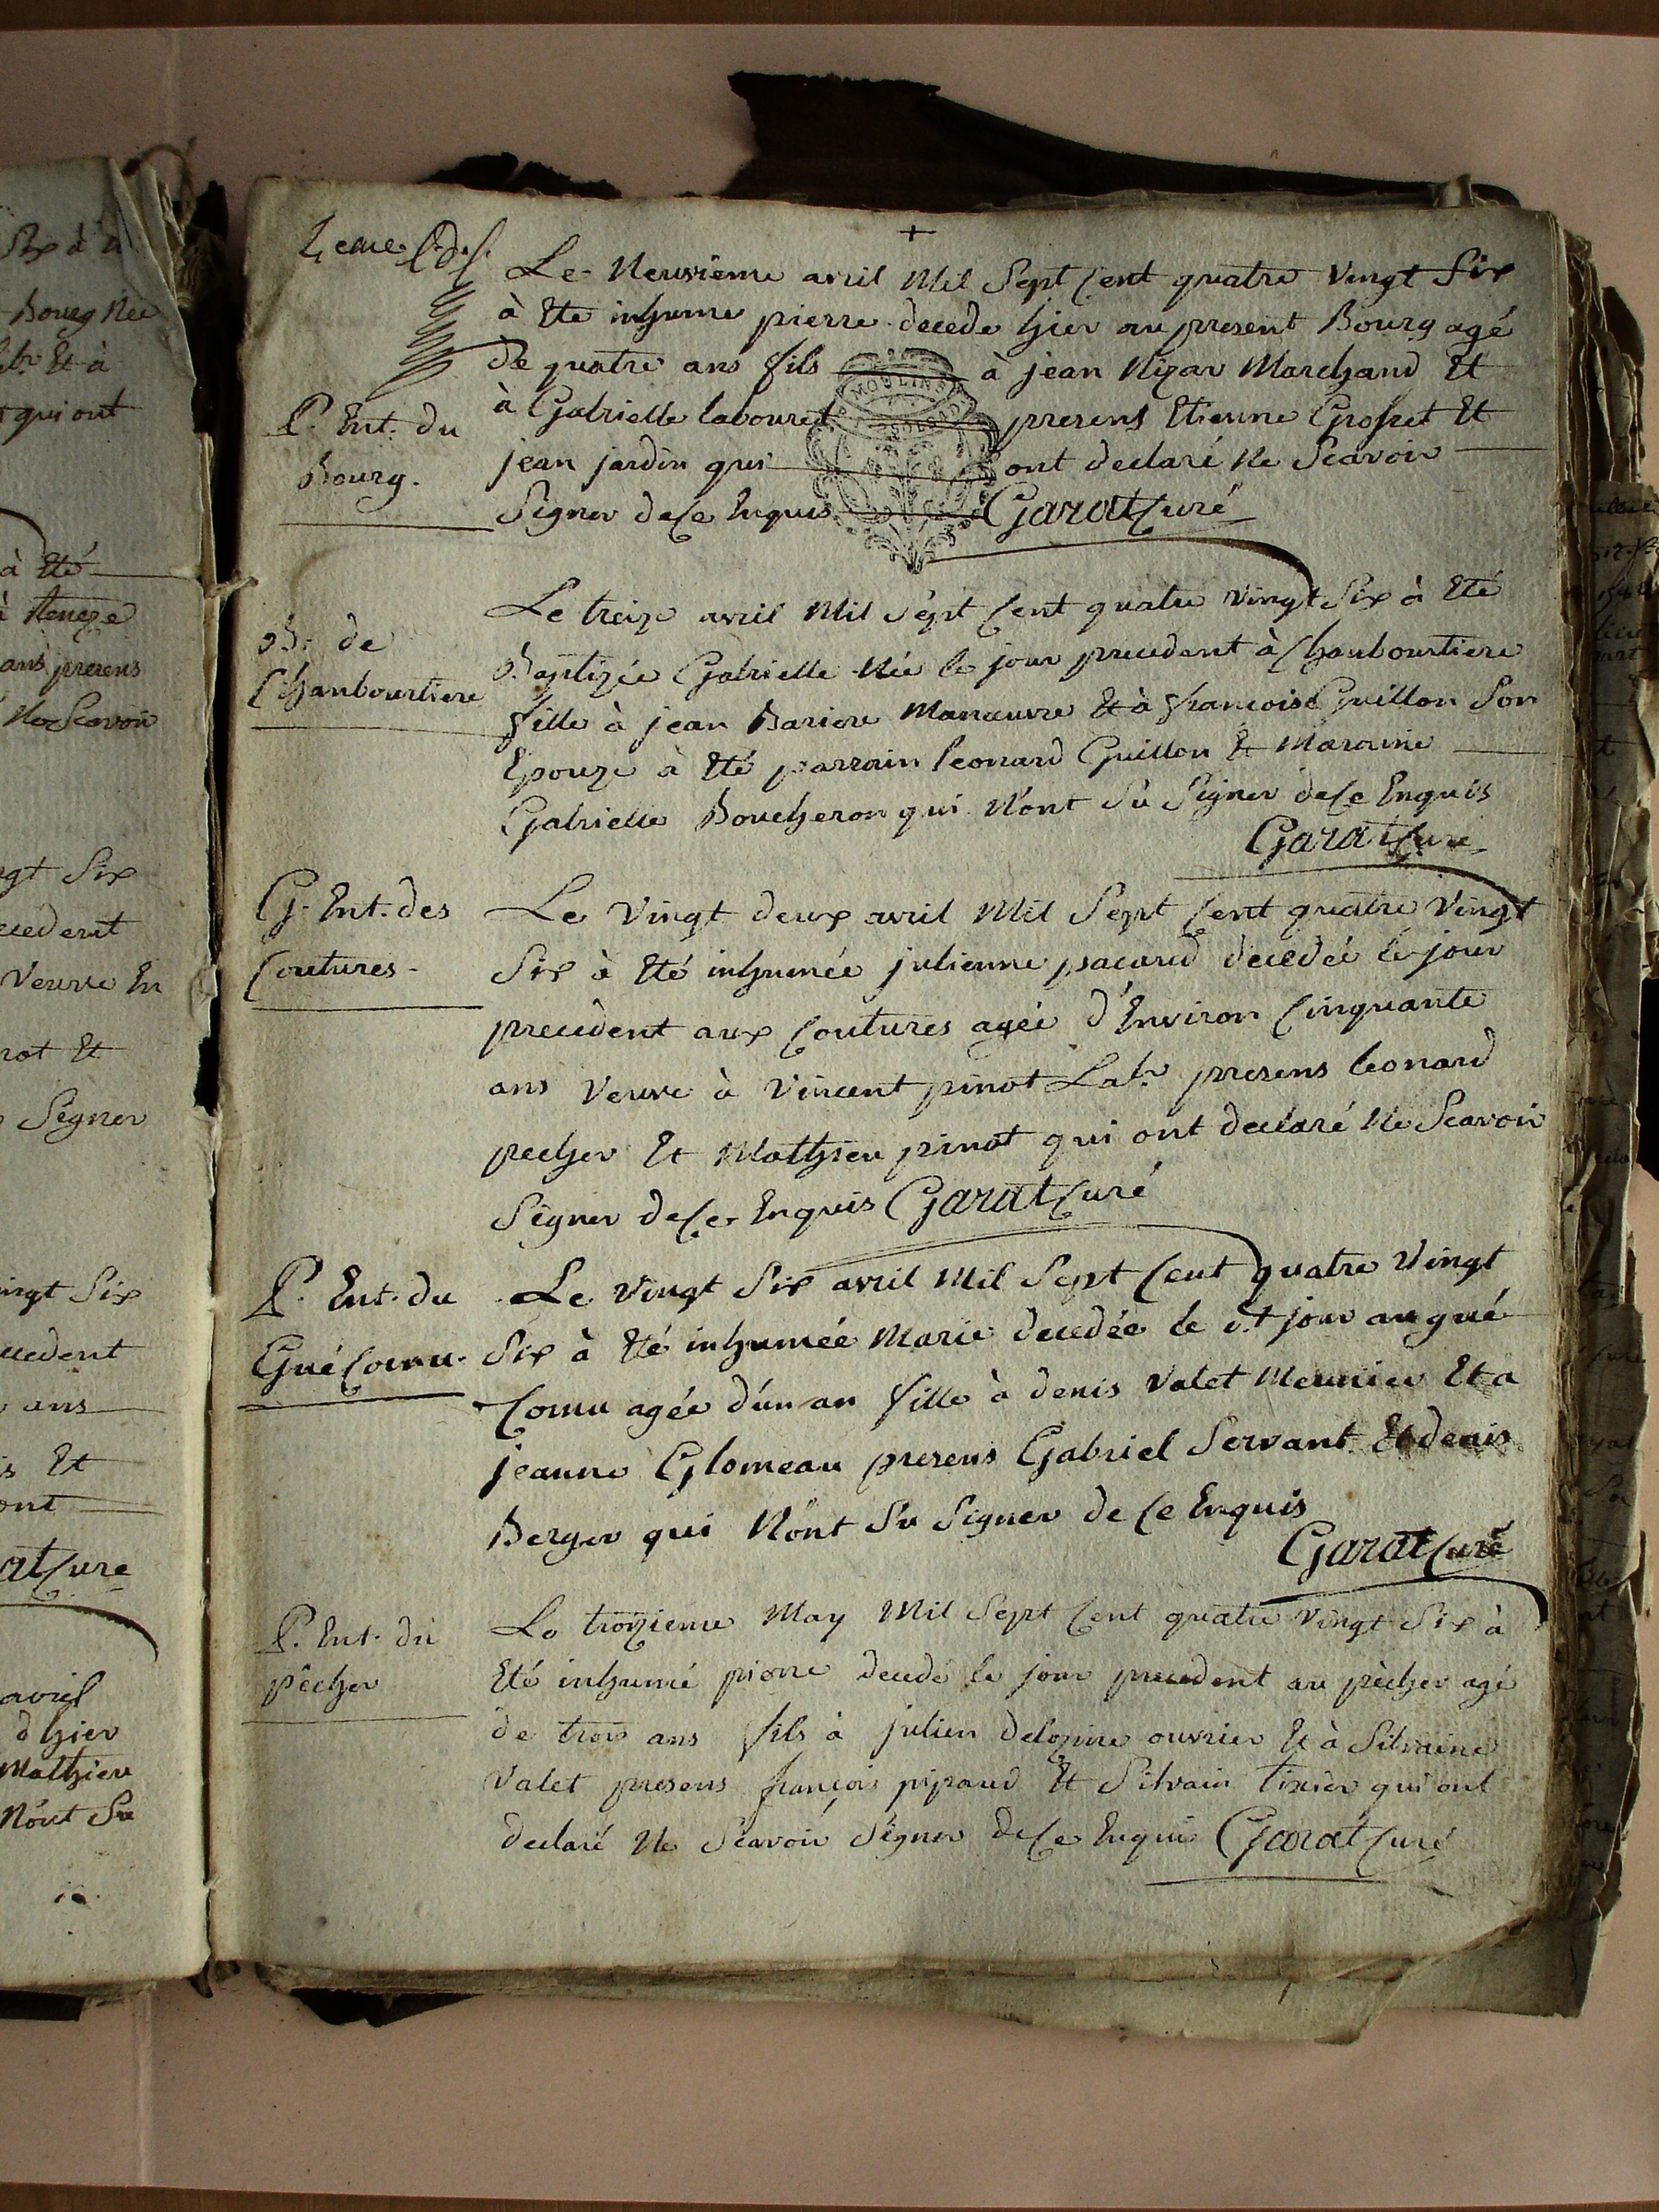 Six à
Bourg Née
Et à
qui ont
à Eté
ans presens
Ne Scavoir
Six
Veuve En
Et
Signer
vingt Six
ans
Et
ont
avril
d hier
Mathieu
N'ont Su
+
Le Neuvieme avril Mil Sept Cent quatre Vingt Six
à Eté inhumé pierre decedé hier au present Bourg agé
de quatre ans fils à jean Nizar Marchand Et
P. Ent. du
à Gabrielle labouret presens Etienne Grosset Et
Bourg.
jean jardin qui ont declaré Ne Scavoir
Signer de Ce Enquis Garat Curé
MOULINS
B. de
Chaubourtiere
Le treize avril Mil Sept Cent quatre Vingt Six à Eté
Baptizée Gabrielle Née le jour precedent à Chaubourtiere
fille à jean Bariere Manœuvre Et à francoise Guillon Son
Epouze à Eté parrain leonard Guillon Et Maraine
Gabrielle Boucheron qui N'ont Sû Signer de Ce Enquis
Garat Curé
G. Ent. des
Coutures.
Le Vingt deux avril Mil Sept Cent quatre Vingt
Six à Eté inhumée julienne pacaud decedée le jour
precedent aux Coutures agée d'Environ Cinquante
ans Veuve à Vincent pinot Labr presens leonard
pecher Et Mathieu pinot qui ont declaré Ne Scavoir
Signer de Ce Enquis Garat Curé
P. Ent. du
Gué Cornu.
Le Vingt Six avril Mil Sept Cent quatre Vingt
Six à Eté inhumée Marie decedée le dt jour au gué
Cornu agée d'un an fille à denis Valet Meunier Et à
jeanne Glomeau presens Gabriel Servant Et denis
Berger qui N'ont Su Signer de Ce Enquis
Garat Curé
P. Ent. du
pêcher
Le troizieme May Mil Sept Cent quatre Vingt Six à
Eté inhumé pierre decedé le jour precedent au pêcher agé
de trois ans fils à julien delozme ouvrier Et à Silvaine
Valet presens françois pipaud Et Silvain tixier qui ont
declaré Ne Scavoir Signer de Ce Enquis Garat Curé